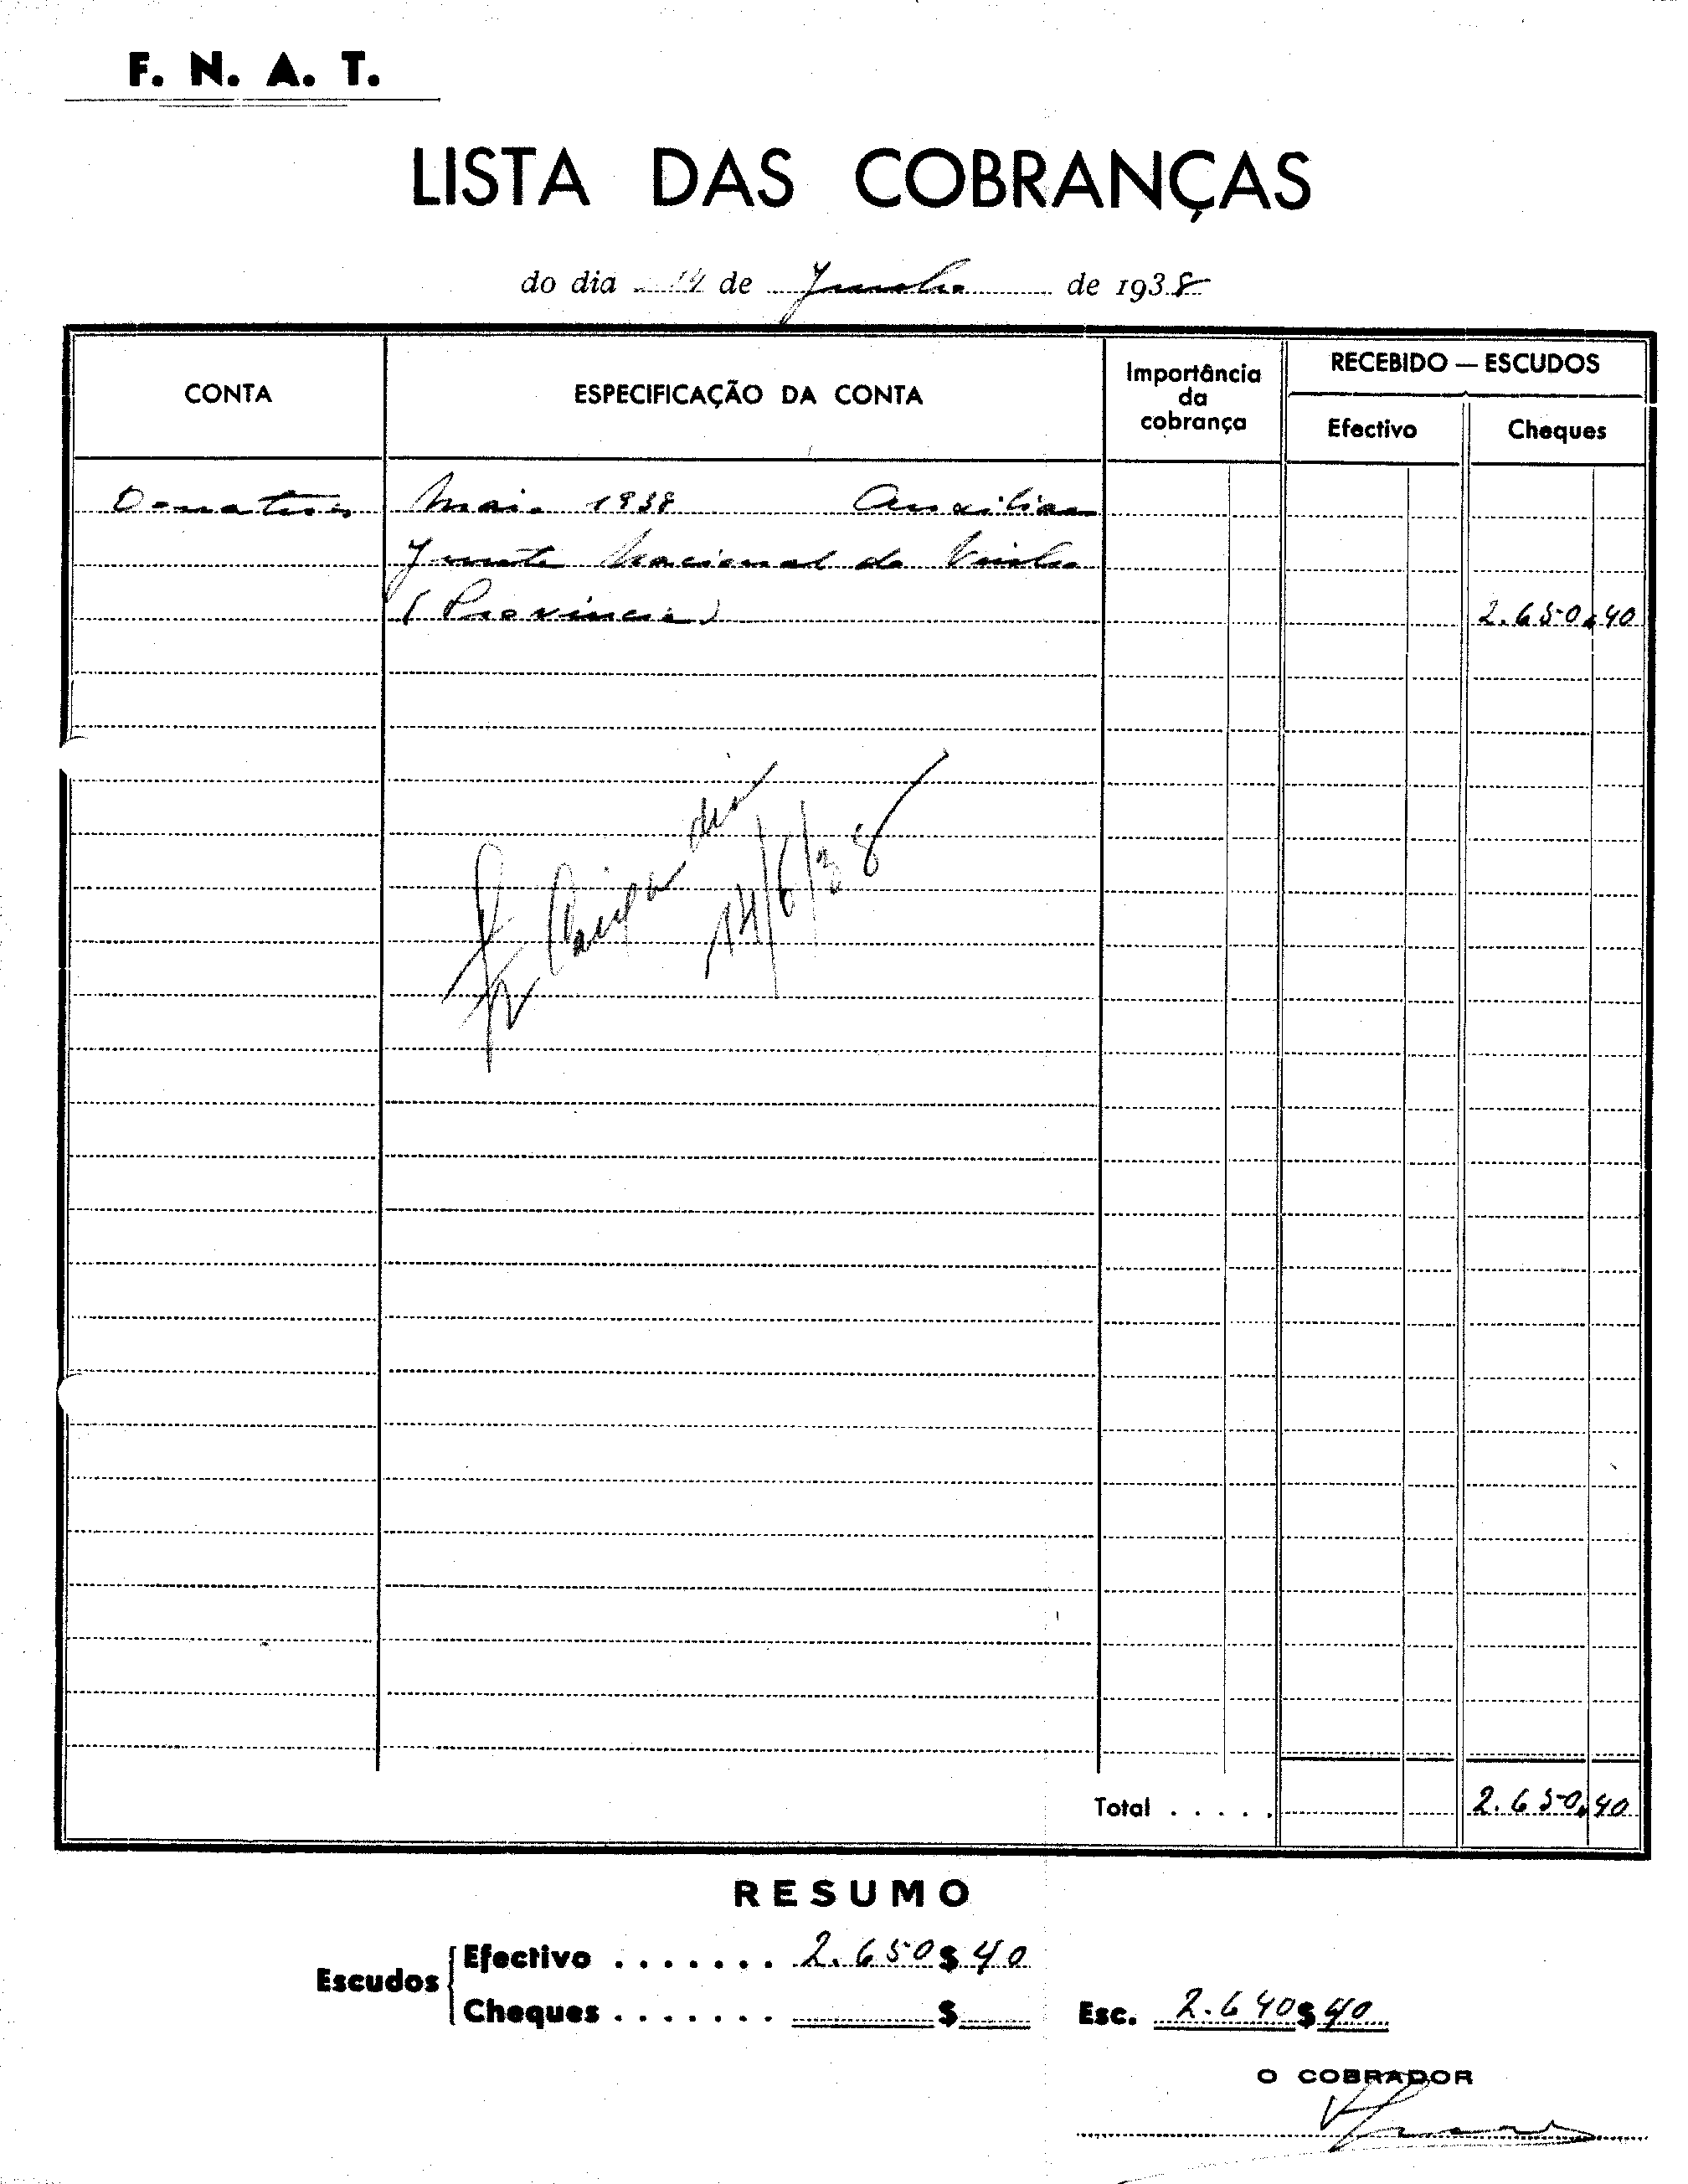 F. N. A. T.
LISTA DAS COBRANÇAS
do dia 14 de Junho de 1938
CONTA
ESPECIFICAÇÃO DA CONTA
Importância
da
cobrança
RECEBIDO — ESCUDOS
Efectivo
Cheques
Donativos Maio 1938 Auxiliar
Junta Nacional do Vinho
(Provincia) 2.650,40
Caixa dia
14/6/38
Total . . . . . 2.650,40
RESUMO
Escudos
Efectivo . . . . . . . 2.650$40
Cheques . . . . . . . $
Esc. 2.640$40
O COBRADOR